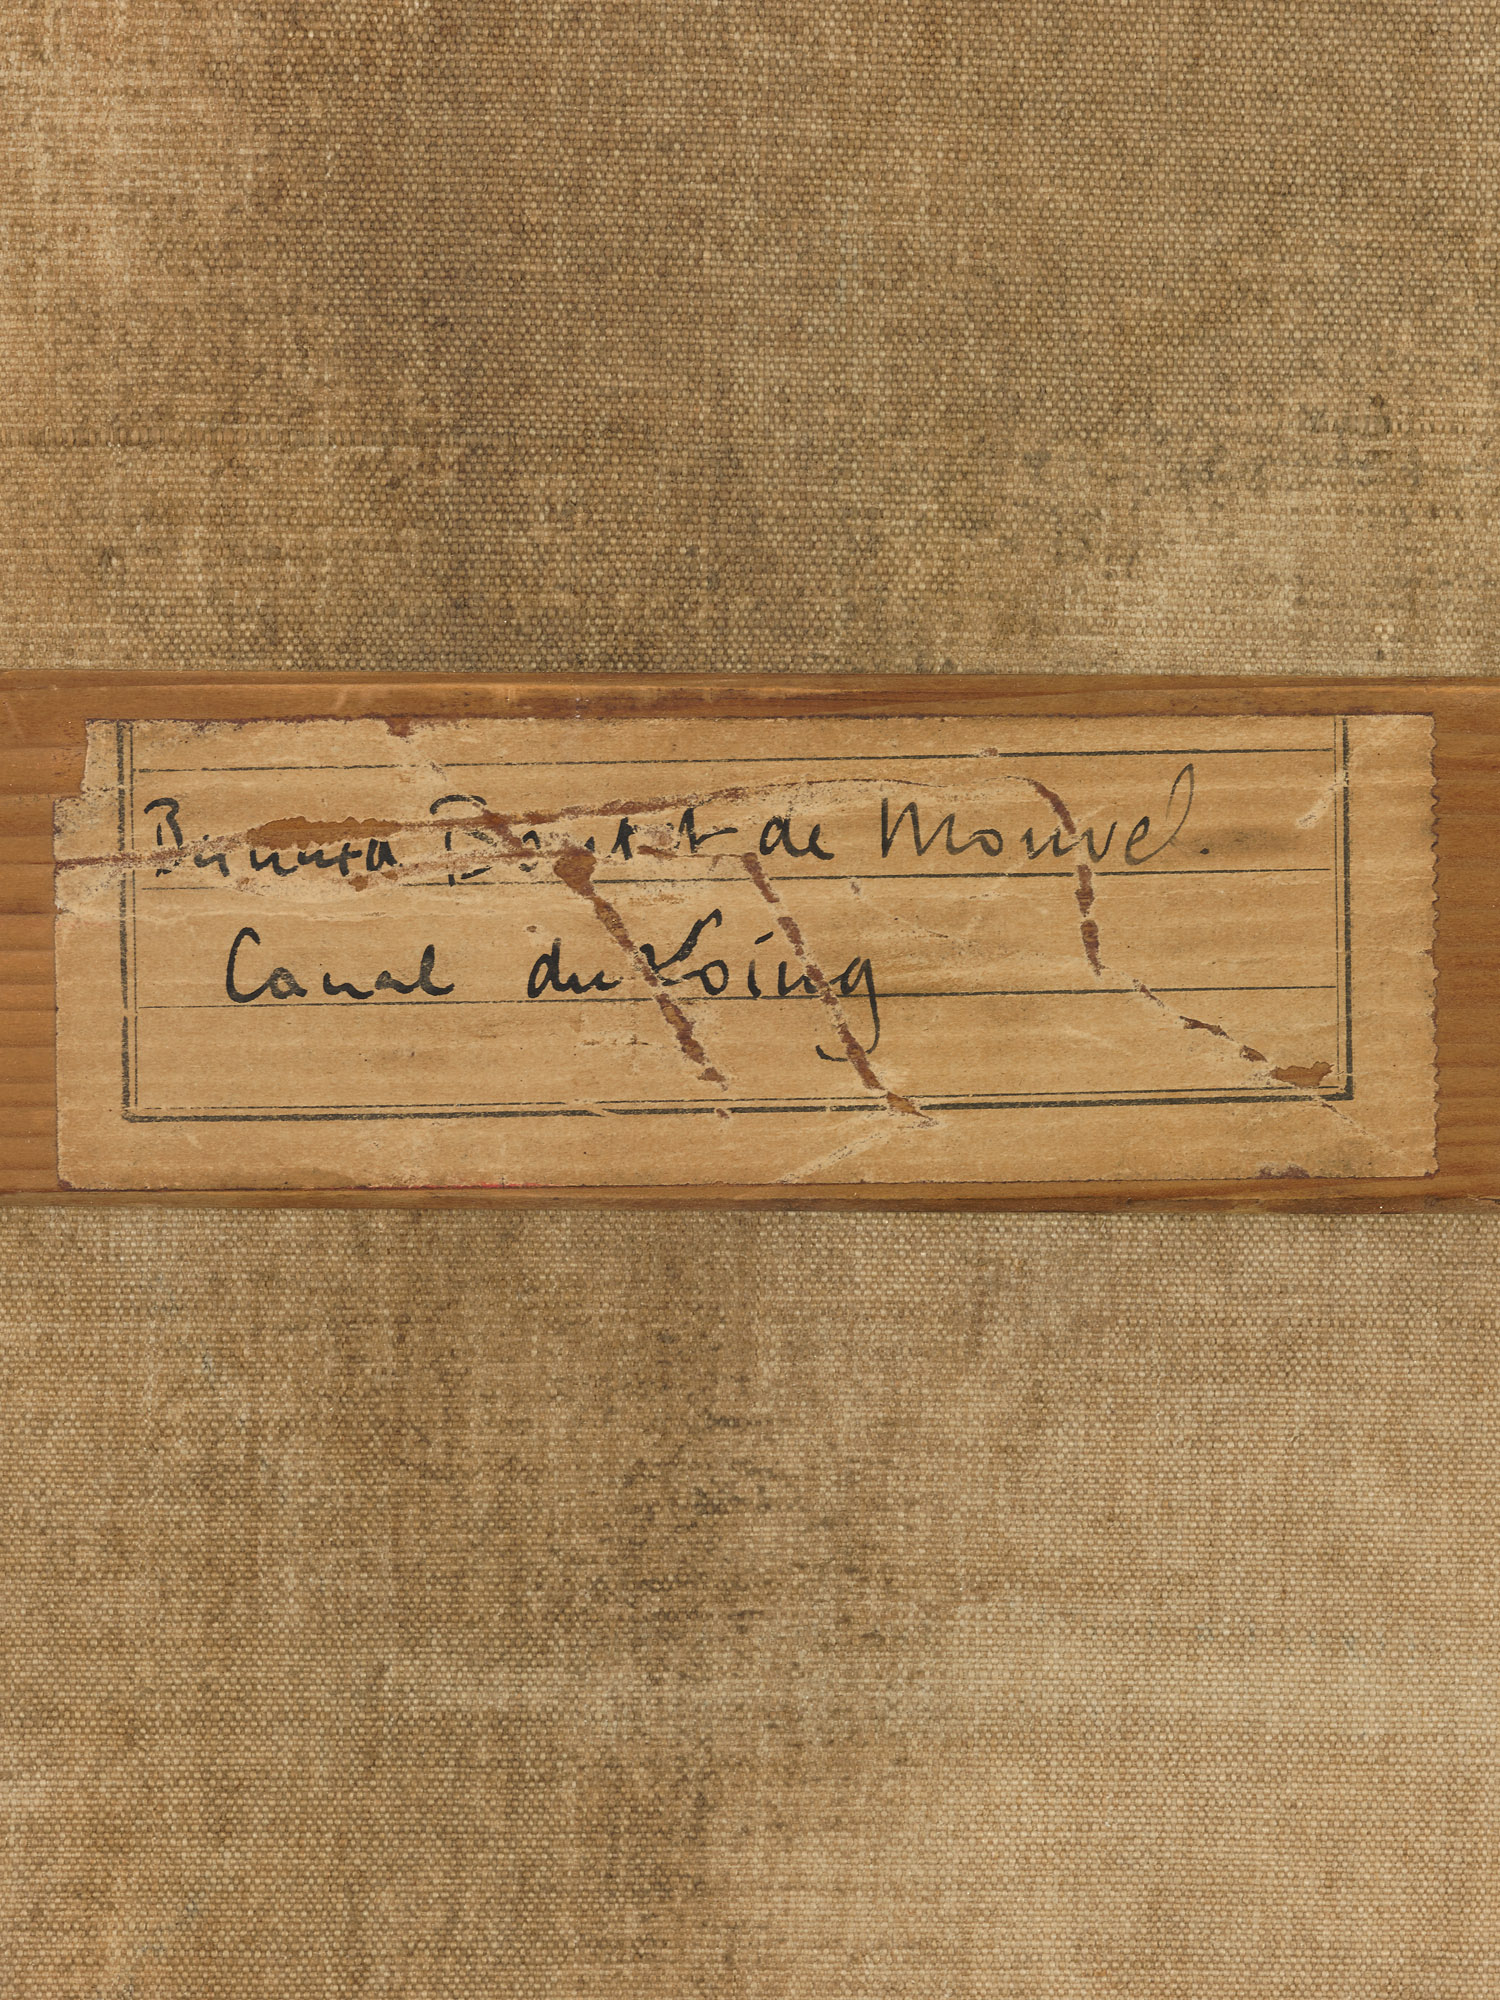 Bernard Boutet de Monvel.
Canal du Loing